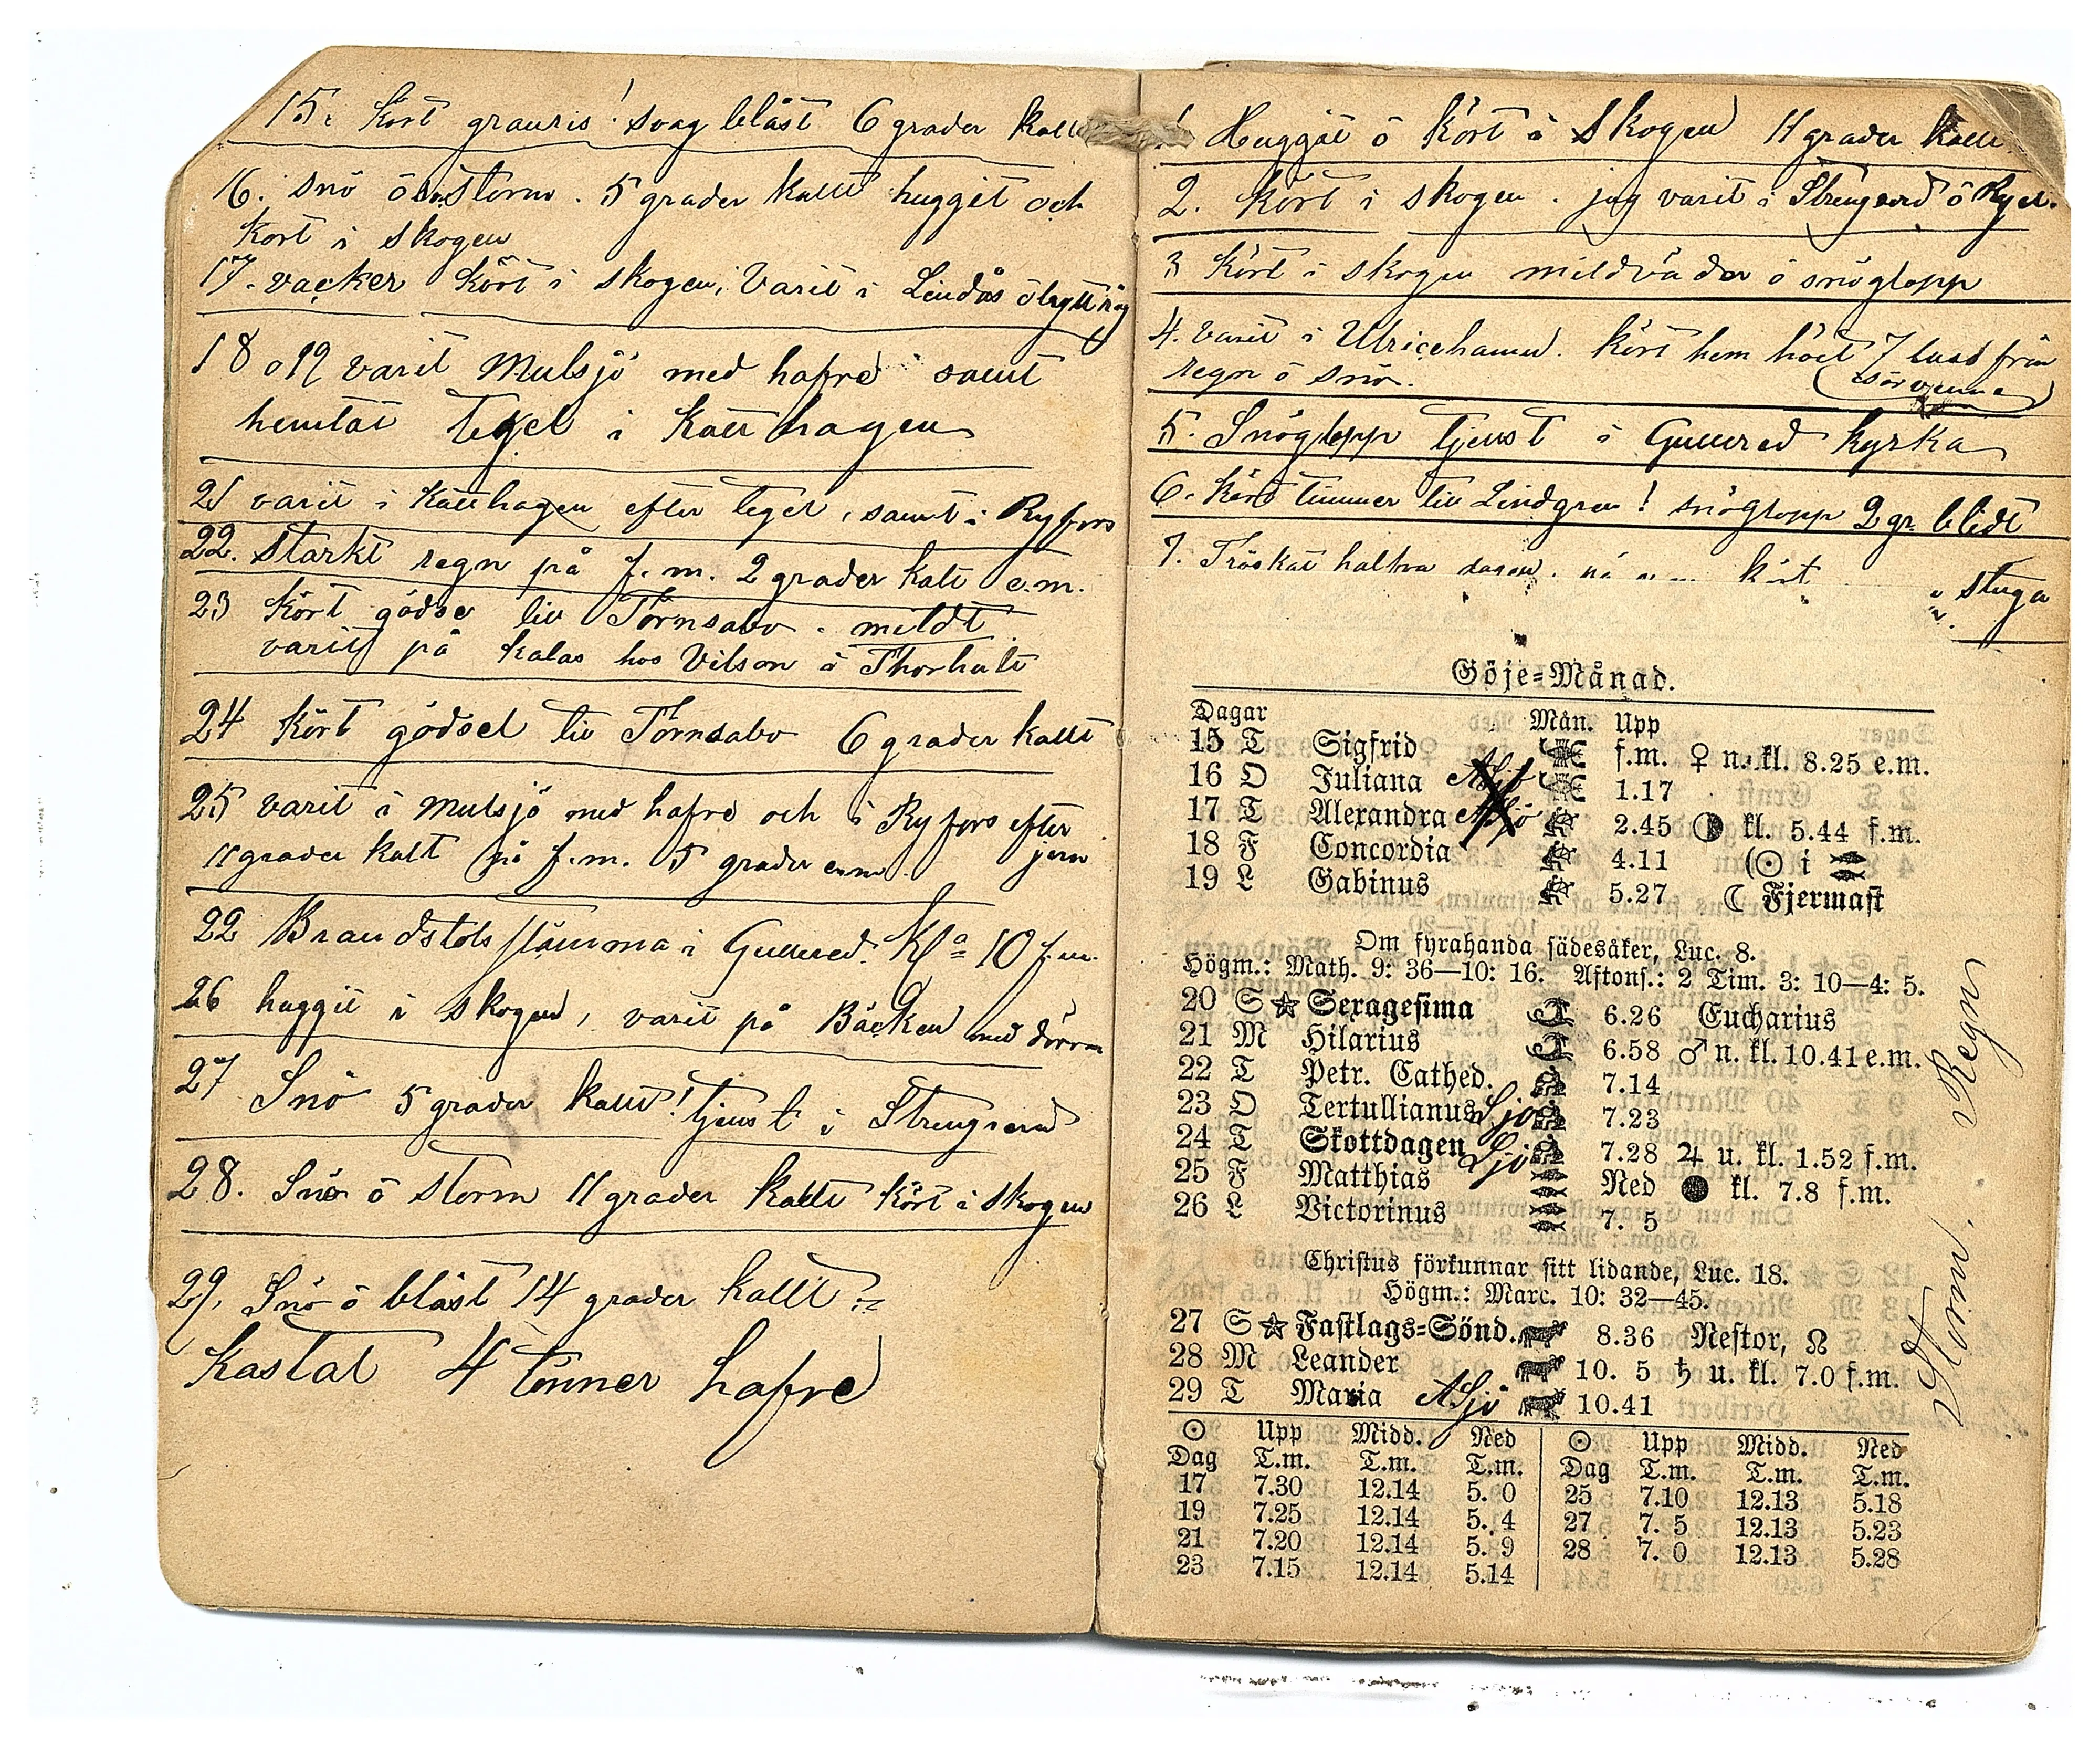 15. Kört granris! svag blåst 6 grader kallt
16. snö ö storm. 5 grader kallt huggit och
Kört i skogen
17. vacker Kört i skogen, Varit i Lindås ö bytt råg
18 o 19 varit Mulsjö med hafre samt
hemtat tegel i Katthagen
21 varit i Katthagen efter tegel, samt i Ryfors
22. Starkt regn på f.m. 2 grader kallt e.m.
23 Kört gödsel till Törnsabo. mildt
varit på kalas hos Vilson i Thorhult
24 Kört gödsel till Törnsabo 6 grader kallt
25 varit i Mulsjö med hafre och i Ryfors efter
11 grader kallt på f.m. 5 grader e.m. jern
22 Brandstodsstämma i Gullered. Kl 10 f.m.
26 huggit i skogen, varit på Bäcken med dörrar
27 Snö 5 grader kallt! tjenst i Strengsered
28. Snö ö storm 11 grader kallt kört i skogen
29. Snö ö blåst 14 grader kallt
Kastat 4 tönner hafre
1 Huggit ö kört i Skogen 11 grader kallt
2. kört i skogen. jag varit i Strengsered ö Ryd.
3 Kört i skogen mildväder ö snöglopp
4. Varit i Ulricehamn. kört hem höet 7 lass från
regn ö snö.
5. Snöglopp tjenst i Gullered kyrka
6. Kört timmer till Lindgren! snöglopp 2 gr. blidt
7. Tröskat halfva dagen. kört
stuga
Göje=Månad.
Dagar Mån. Upp
15 T Sigfrid f.m. ♀ n. kl. 8.25 e.m.
16 O Juliana 1.17
17 T Alexandra 2.45 ◑ kl. 5.44 f.m.
18 F Concordia 4.11 (☉ i
19 L Gabinus 5.27 ☾ Fjermast
Om fyrahanda sädesåker, Luc. 8.
Högm.: Math. 9: 36—10: 16. Aftons.: 2 Tim. 3: 10—4: 5.
20 S ☆ Sexagesima 6.26 Eucharius
21 M Hilarius 6.58 ♂ n. kl. 10.41 e.m.
22 T Petr. Cathed. 7.14
23 O Tertullianus Sjö 7.23
24 T Skottdagen Sjö 7.28 ♃ u. kl. 1.52 f.m.
25 F Matthias Ned ● kl. 7.8 f.m.
26 L Victorinus 7. 5
Christus förkunnar sitt lidande, Luc. 18.
Högm.: Marc. 10: 32—45.
27 S ☆ Fastlags=Sönd. 8.36 Nestor, ☊
28 M Leander 10. 5 ♄ u. kl. 7.0 f.m.
29 T Maria ASjö 10.41
Storm. Regn
☉ Upp Midd. Ned ☉ Upp Midd. Ned
Dag T.m. T.m. T.m. Dag T.m. T.m. T.m.
17 7.30 12.14 5. 0 25 7.10 12.13 5.18
19 7.25 12.14 5. 4 27 7. 5 12.13 5.23
21 7.20 12.14 5. 9 28 7. 0 12.13 5.28
23 7.15 12.14 5.14